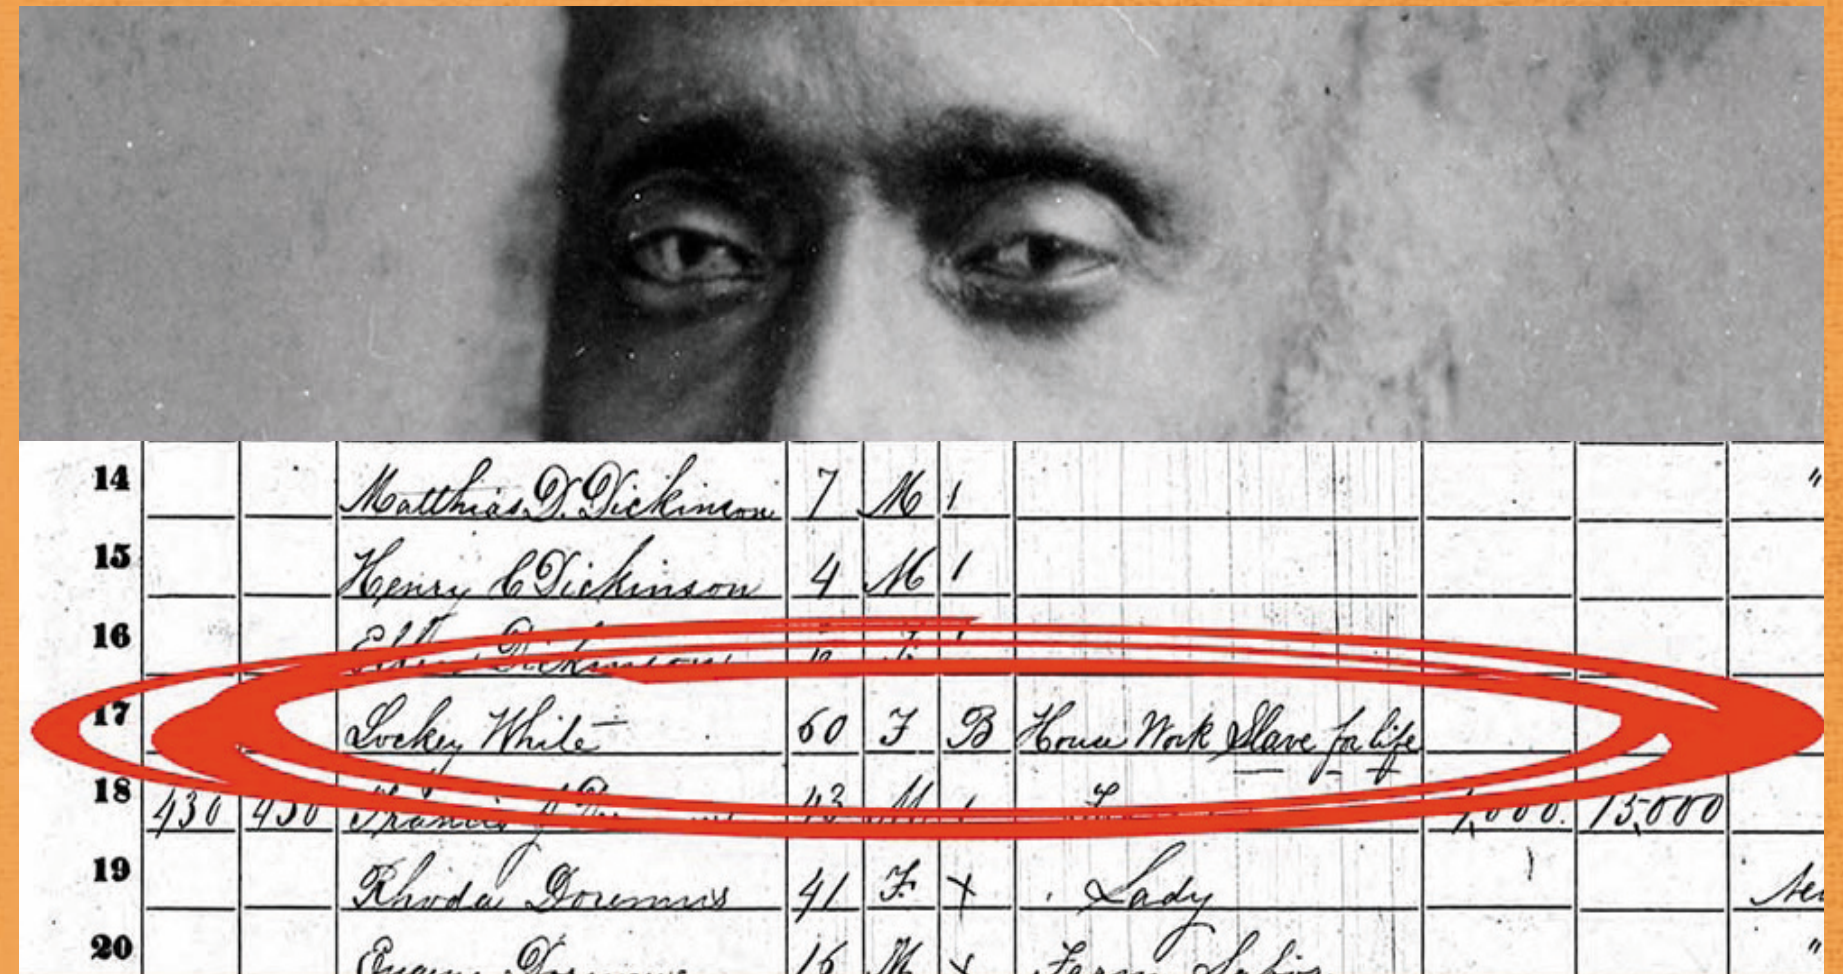 14 Matthias D. Dickinson 7 M 1 "
15 Henry C Dickinson 4 M 1
16 Dickinson F 1
17 Lockey White 60 F B House Work Slave for life
18 430 450 Francis J 43 M 1 1,000. 15,000
19 Rhoda Doremus 41 F X Lady
20 Eugene Doremus 16 M X Farm Labor "